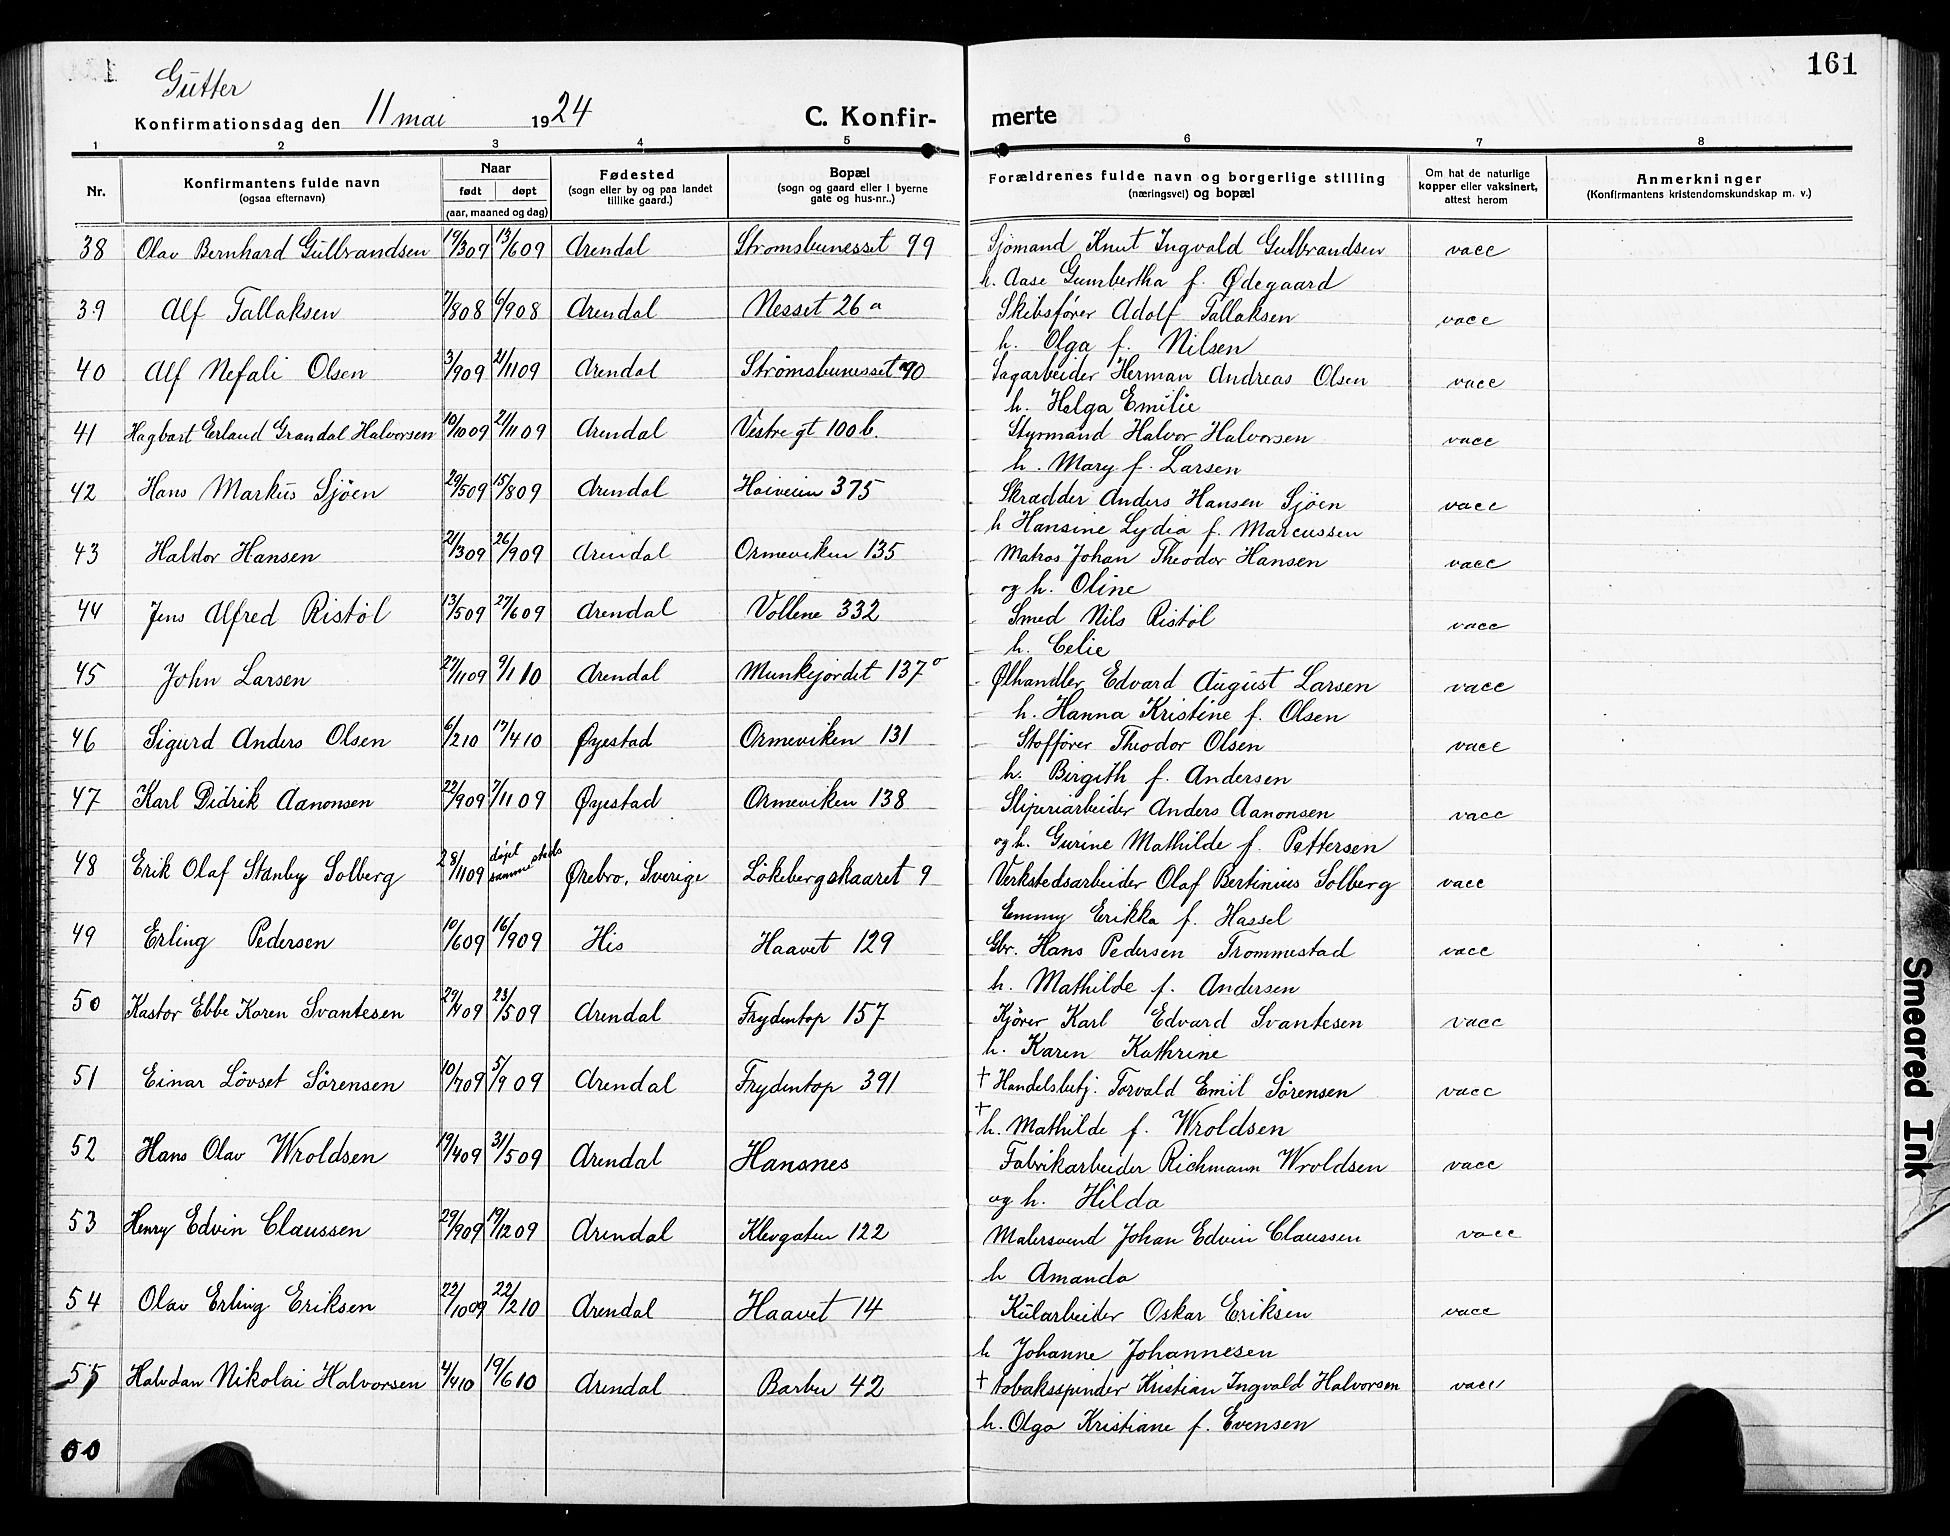 161
Gutter
Konfirmationsdag den 11 mai 1924 C. Konfir- merte
1 2 3 4 5 6 7 8
Nr. Konfirmantens fulde navn (ogsaa efternavn) Naar født døpt (aar, maaned og dag) Fødested (sogn eller by og paa landet tillike gaard.) Bopæl (sogn og gaard eller i byerne gate og hus-nr..) Forældrenes fulde navn og borgerlige stilling (næringsvei) og bopæl Om hat de naturlige kopper eller vaksinert, attest herom Anmerkninger (Konfirmantens kristendomskundskap m. v.)
38 Olav Bernhard Gulbrandsen 19/3 09 13/6 09 Arendal Strømsbunesset 99 Sjømand Knut Ingvald Gulbrandsen vacc
h. Aase Gumbertha f. Ødegaard
39 Alf Tallaksen 7/8 08 6/9 08 Arendal Nesset 26 a Skibsfører Adolf Tallaksen vacc
h. Olga f. Nilsen
40 Alf Nefali Olsen 3/9 09 21/11 09 Arendal Strømsbunesset 90 Sagarbeider Herman Andreas Olsen vacc
h. Helga Emilie
41 Hagbart Erland Grandal Halvorsen 10/10 09 21/11 09 Arendal Vestre gt 100 b. Styrmand Halvor Halvorsen vacc
h. Mary f. Larsen
42 Hans Markus Sjöen 29/5 09 15/8 09 Arendal Hoiveien 375 Skrædder Anders Hansen Sjöen vacc
h Hansine Lydia f. Marcussen
43 Haldor Hansen 21/3 09 26/9 09 Arendal Ormeviken 135 Matros Johan Theodor Hansen vacc
og h. Oline
44 Jens Alfred Ristöl 13/5 09 27/6 09 Arendal Vollene 332 Smed Nils Ristöl vacc
h. Celie
45 John Larsen 27/11 09 9/1 10 Arendal Munkejordet 137 a Ølhandler Edvard August Larsen vacc
h. Hanna Kristine f. Olsen
46 Sigurd Anders Olsen 6/2 10 17/4 10 Øyestad Ormeviken 131 Stoffører Theodor Olsen vacc
h. Birgith f. Andersen
47 Karl Didrik Aanonsen 22/9 09 7/11 09 Øyestad Ormeviken 138 Sliperiarbeider Anders Aanonsen vacc
og h. Gurine Mathilde f. Pettersen
48 Erik Olaf Stanley Solberg 28/11 09 døpt samme steds Ørebro, Sverige Lökebergskaaret 9 Verkstedsarbeider Olaf Bertinius Solberg vacc
Emmy Erikka f. Hassel
49 Erling Pedersen 10/6 09 16/9 09 His Haavet 129 Gbr. Hans Pedersen Trommestad vacc
h. Mathilde f. Andersen
50 Kastor Ebbe Koren Svantesen 29/4 09 23/5 09 Arendal Frydentop 157 Kjörer Karl Edvard Svantesen vacc
h. Karen Kathrine
51 Einar Lövset Sörensen 10/7 09 5/9 09 Arendal Frydentop 391 † Handelsbetj. Torvald Emil Sörensen vacc
† h. Mathilde f. Wroldsen
52 Hans Olav Wroldsen 19/4 09 31/5 09 Arendal Hansnes Fabrikarbeider Richmann Wroldsen vacc
og h. Hilda
53 Henry Edvin Claussen 29/9 09 19/12 09 Arendal Klevgaten 122 Malersvend Johan Edvin Claussen vacc
h Amanda
54 Olav Erling Eriksen 22/10 09 22/2 10 Arendal Haavet 14 Kularbeider Oskar Eriksen vacc
h Johanne Johannesen
55 Halvdan Nikolai Halvorsen 4/4 10 19/6 10 Arendal Barbu 42 † tobaksspinder Kristian Ingvald Halvorsen vacc
h. Olga Kristiane f. Evensen
Smeared Ink